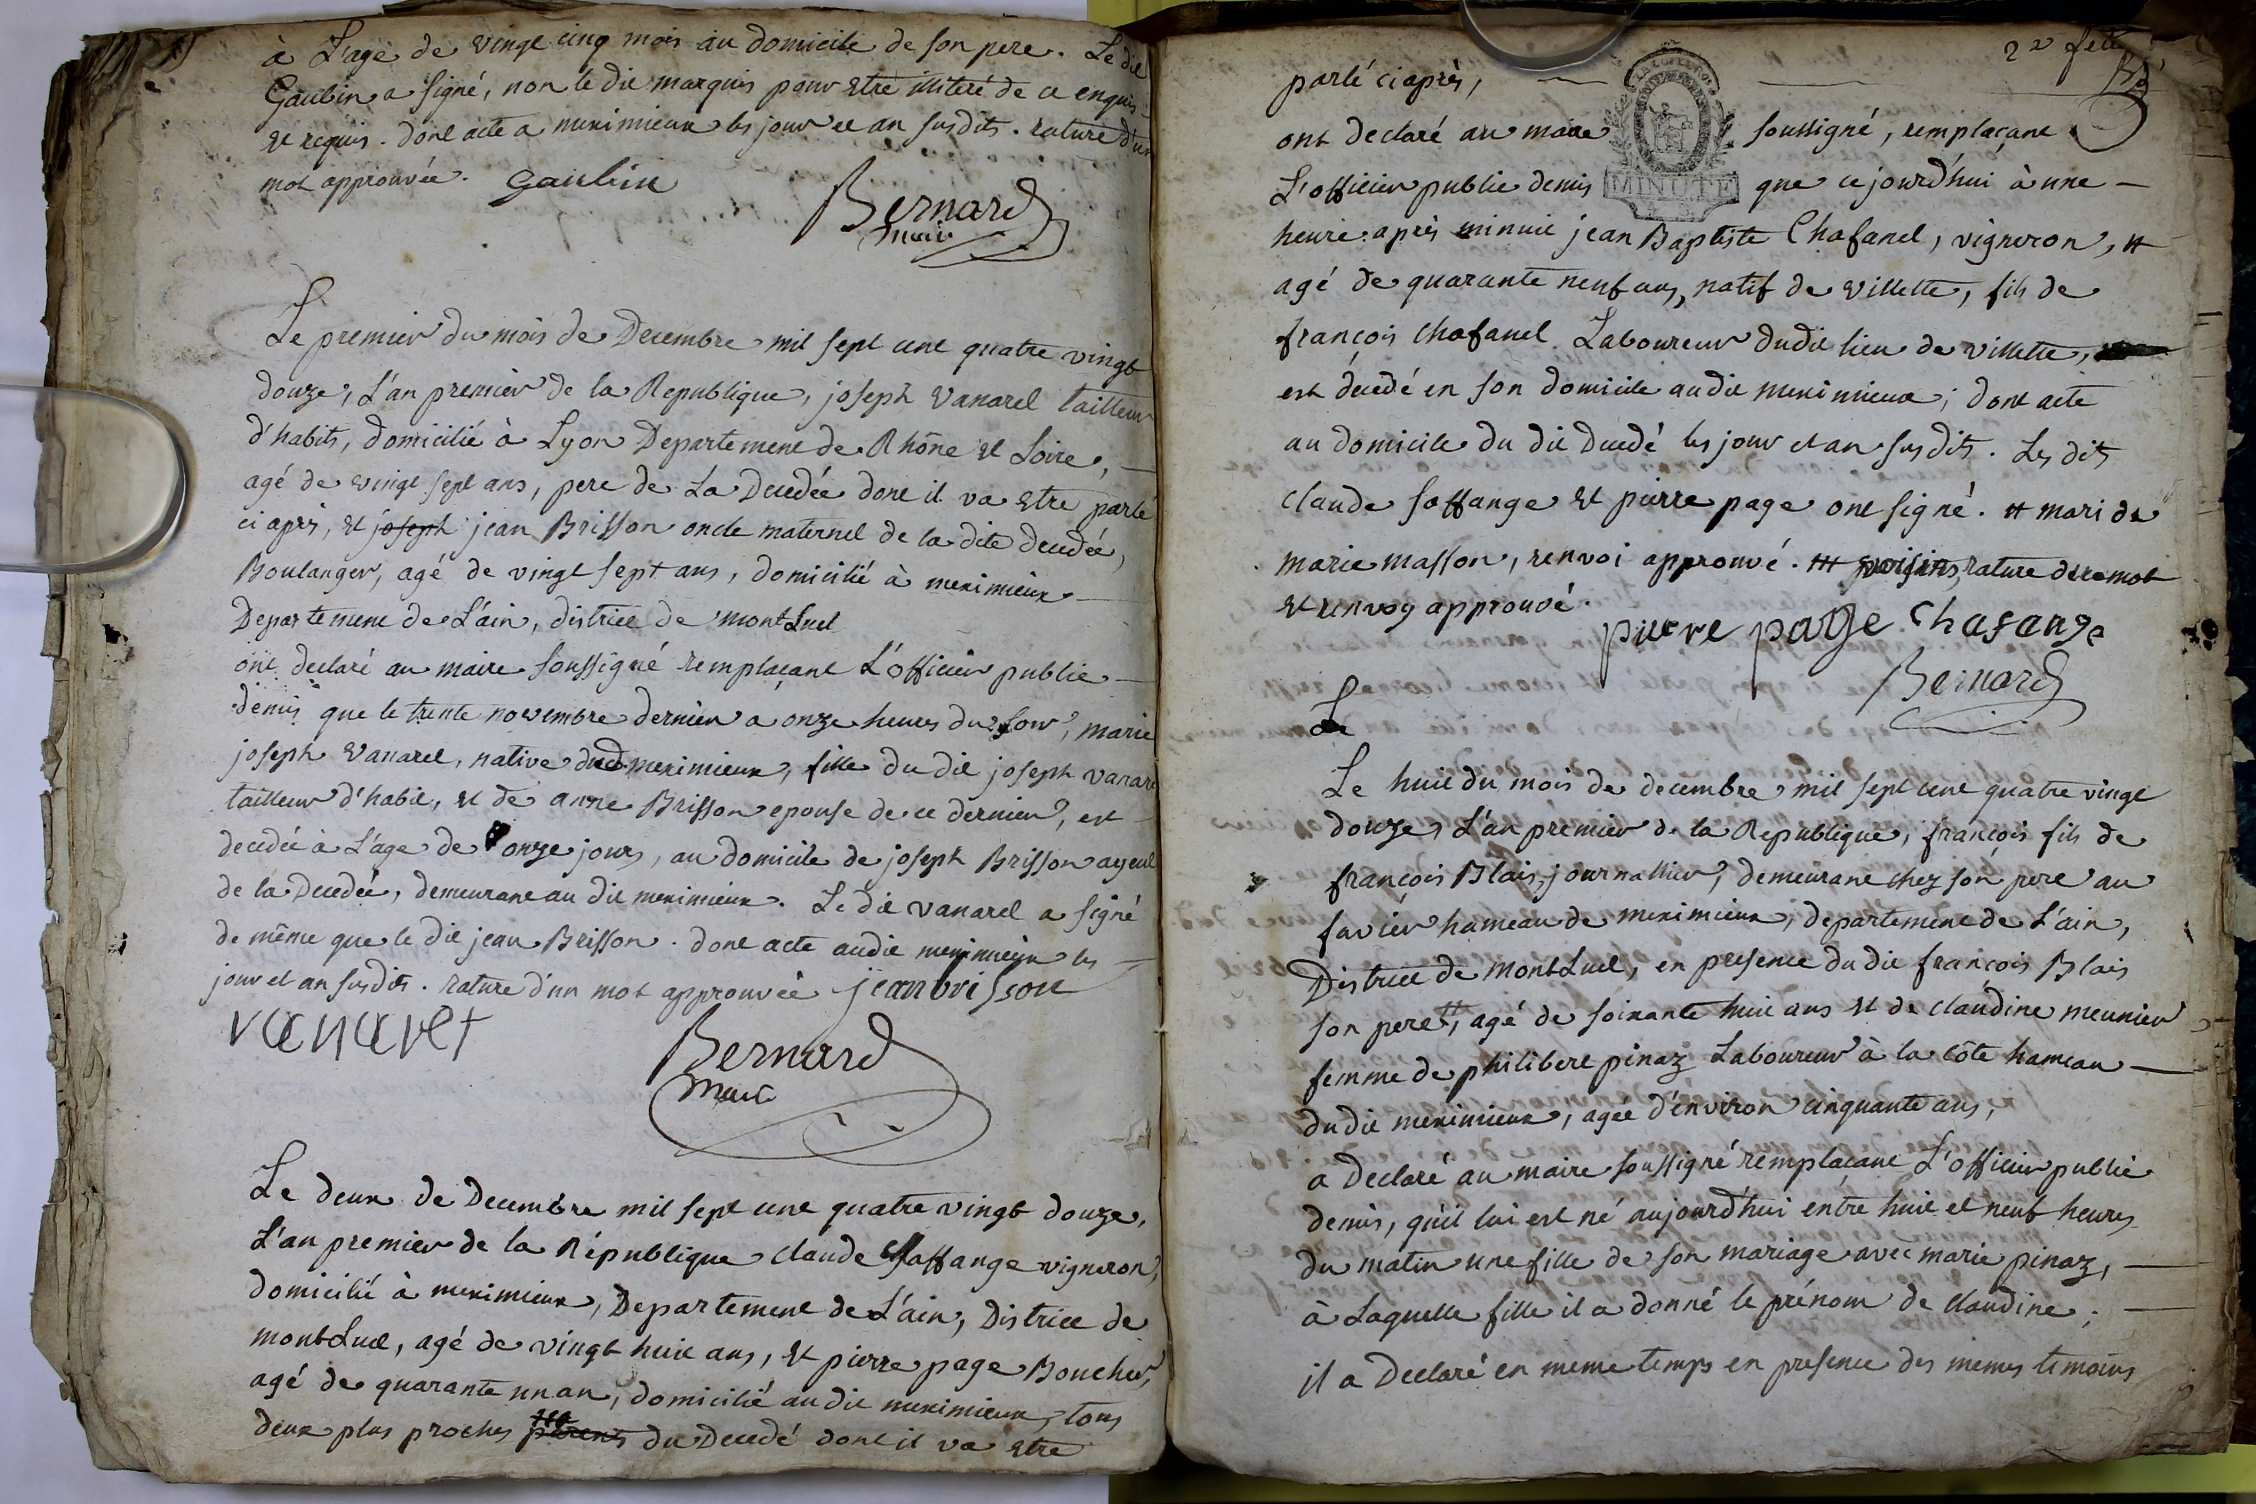 à L'age de vingt cinq mois au domicile de son pere. Le dit
Gaubin a signé, non le dit marquis pour etre illiteré de ce enquis
et requis. dont acte a meximieux les jour et an susdits. rature d'un
mot approuvée. Gaubin
Bernard
maire
Le premier du mois de Decembre mil sept cent quatre vingt
douze, L'an premier de la Republique, joseph Vanarel tailleur
d'habits, domicilié à Lyon Departement de Rhône et Loire,
agé de vingt sept ans, pere de La Decedée dont il va etre parlé
ci après, et joseph jean Brisson oncle maternel de la dite decedée,
Boulanger, agé de vingt sept ans, domicilié à meximieux
Departement de L'ain, district de montLuel
ont declaré au maire soussigné remplaçant L'officier public
demis que le trente novembre dernier a onze heures du soir, marie
joseph Vanarel, native dud. meximieux, fille du dit joseph vanarel
tailleur d'habit, et de anne Brisson epouse de ce dernier, est
decedée à L'âge de onze jours, au domicile de joseph Brisson ayeul
de la Decedée, demeurant au dit meximieux. Le dit vanarel a signé
de même que le dit jean Brisson. dont acte audit meximieux les
jour et an susdits. rature d'un mot approuvée jean brisson
vanarel
Bernard
maire
Le deux de Decembre mil sept cent quatre vingt douze,
L'an premier de la République claude Saffange vigneron,
domicilié à meximieux, Departement de L'ain, District de
montLuel, agé de vingt huit ans, et pierre page Boucher,
agé de quarante un an, domicilié au dit meximieux, tous
deux plus proches parents du Decedé dont il va etre
2e
parlé ci après,
ont declaré au maire soussigné, remplaçant
L'officier public demis MINUTE que cejourd'hui à une
heure après minuit jean Baptiste Chafanel, vigneron, #
agé de quarante neuf ans, natif de Villette, fils de
françois Chafanel Laboureur dudit lieu de villette,
est decedé en son domicile audit meximieux; dont acte
au domicile du dit Decedé les jour et an susdits. Les dits
claude saffange et pierre page ont signé. # mari de
marie masson, renvoi approuvé. ## voisins, rature de ce mot
et renvoy approuvé.
pierre page Chafange
Bernard
Le
Le huit du mois de decembre mil sept cent quatre vingt
douze, L'an premier de la Republique, françois fils de
françois Blais, journallier, demeurant chez son pere au
favier hameau de meximieux, departement de L'ain,
District de MontLuel, en presence du dit françois Blais
son pere #, agé de soixante huit ans et de claudine meunier
femme de philibert pinaz Laboureur à la Côte hameau
dudit meximieux, agée d'environ cinquante ans,
a declaré au maire soussigné remplacant L'officier public
demis, qu'il lui est né aujourd'hui entre huit et neuf heures
du matin une fille de son mariage avec marie pinaz,
à Laquelle fille il a donné le prénom de claudine;
il a Declaré en meme temps en presence des memes temoins